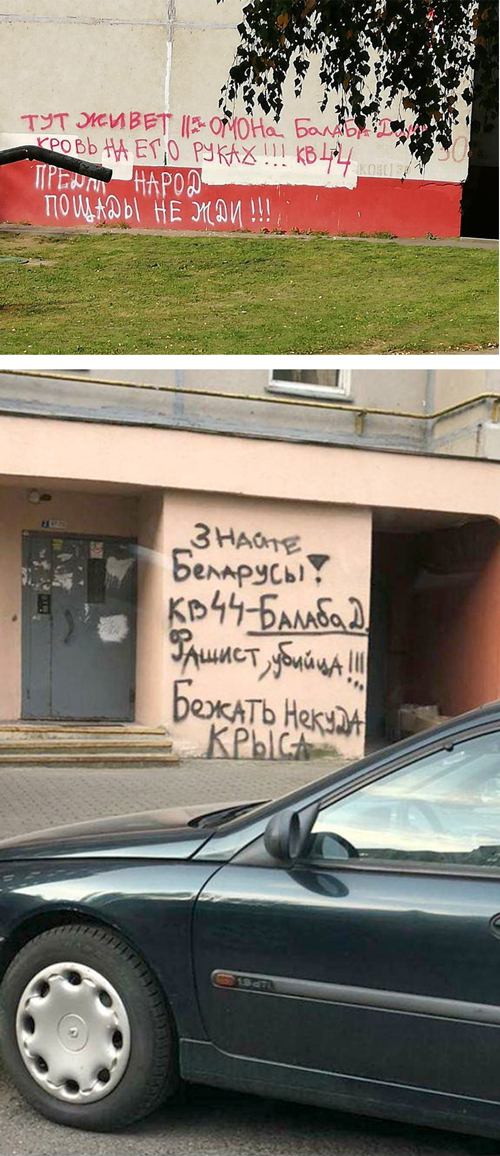 ТУТ ЖИВЕТ ОМОНа БАЛАБА
КРОВЬ НА ЕГО РУКАХ!!! КВ 44
ПРЕДАЛ НАРОД
ПОЩАДЫ НЕ ЖДИ!!!
ЗНАйТЕ
БеЛАРУСЫ!
КВ 44-БАЛАбА Д.
ФАШИСТ, убийцА!!!
БежАТЬ НекудА
КРЫСА
1.9 dTi